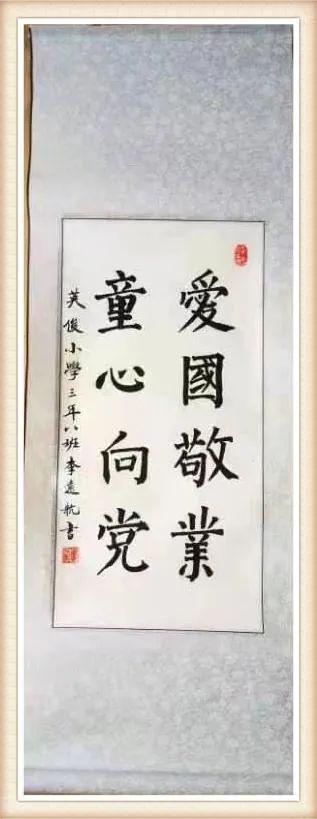 愛國敬業
童心向党
英俊小學三年八班李遠航書